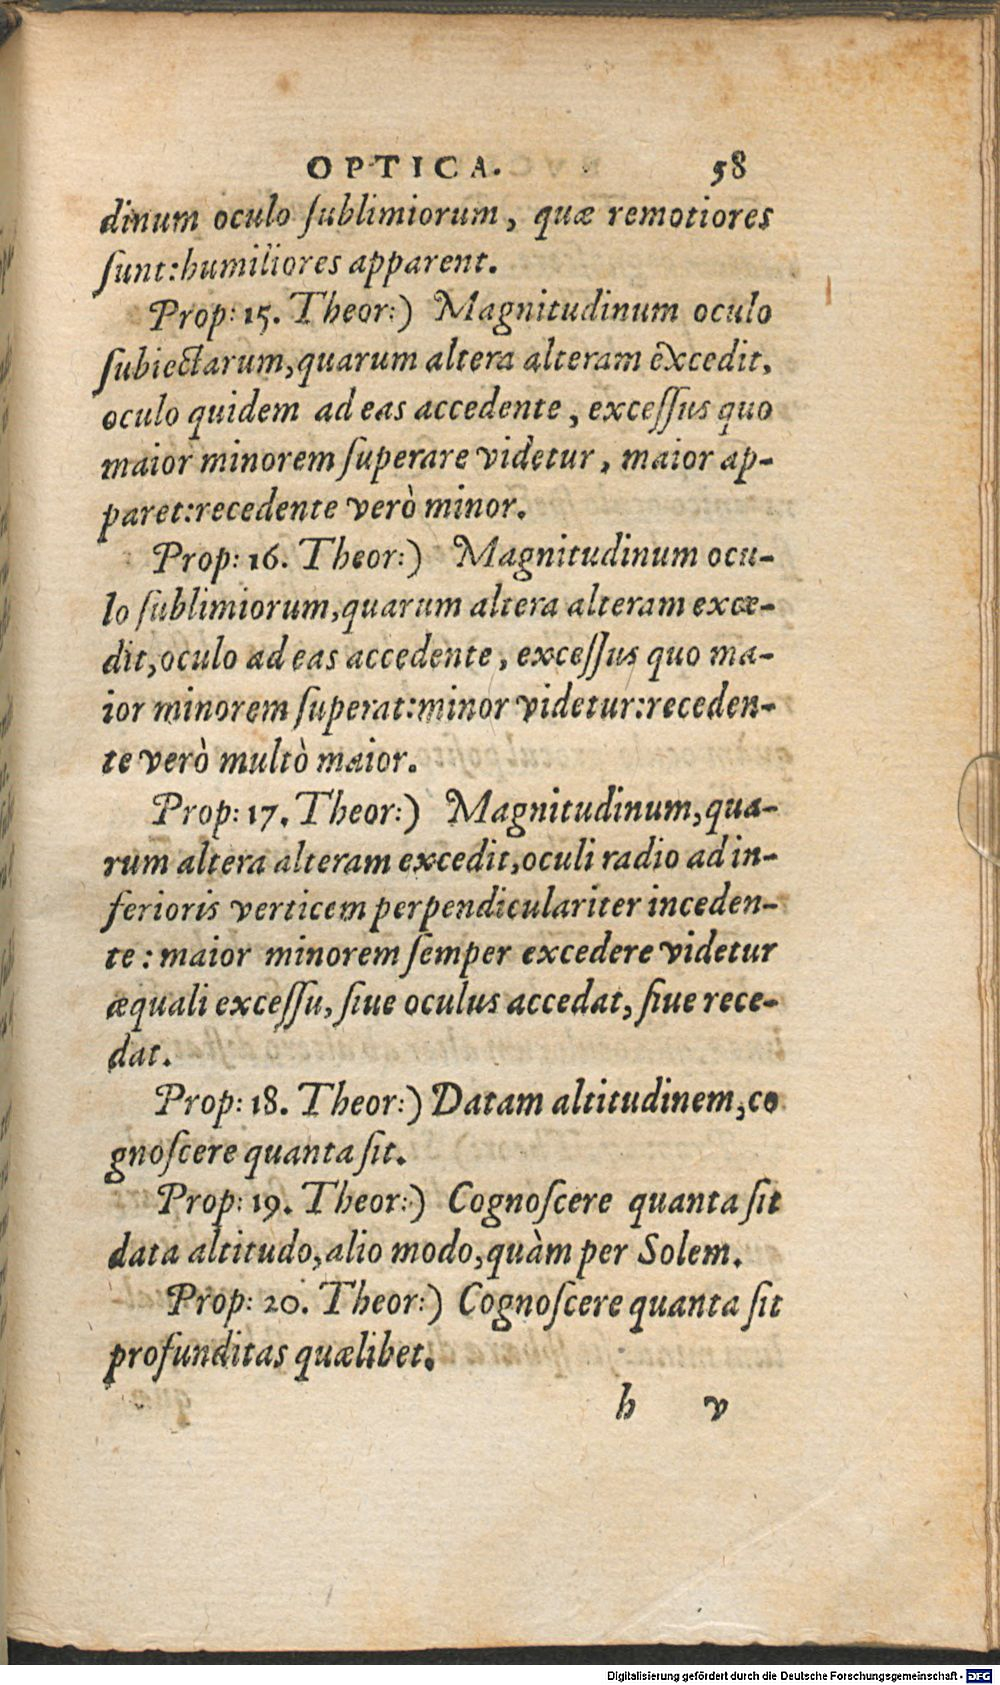 OPTICA. 58
dinum oculo ſublimiorum, quæ remotiores
ſunt: humiliores apparent.
Prop: 15. Theor:) Magnitudinum oculo
ſubiectarum, quarum altera alteram excedit,
oculo quidem ad eas accedente, exceſſus quo
maior minorem ſuperare videtur, maior ap-
paret: recedente verò minor.
Prop: 16. Theor:) Magnitudinum ocu-
lo ſublimiorum, quarum altera alteram exce-
dit, oculo ad eas accedente, exceſſus quo ma-
ior minorem ſuperat: minor videtur: receden-
te verò multò maior.
Prop: 17. Theor:) Magnitudinum, qua-
rum altera alteram excedit, oculi radio ad in-
ferioris verticem perpendiculariter inceden-
te: maior minorem ſemper excedere videtur
æquali exceſſu, ſiue oculus accedat, ſiue rece-
dat.
Prop: 18. Theor:) Datam altitudinem, co
gnoſcere quanta ſit.
Prop: 19. Theor:) Cognoſcere quanta ſit
data altitudo, alio modo, quàm per Solem.
Prop: 20. Theor:) Cognoſcere quanta ſit
profunditas quælibet.
h v
Digitalisierung gefördert durch die Deutsche Forschungsgemeinschaft - DFG